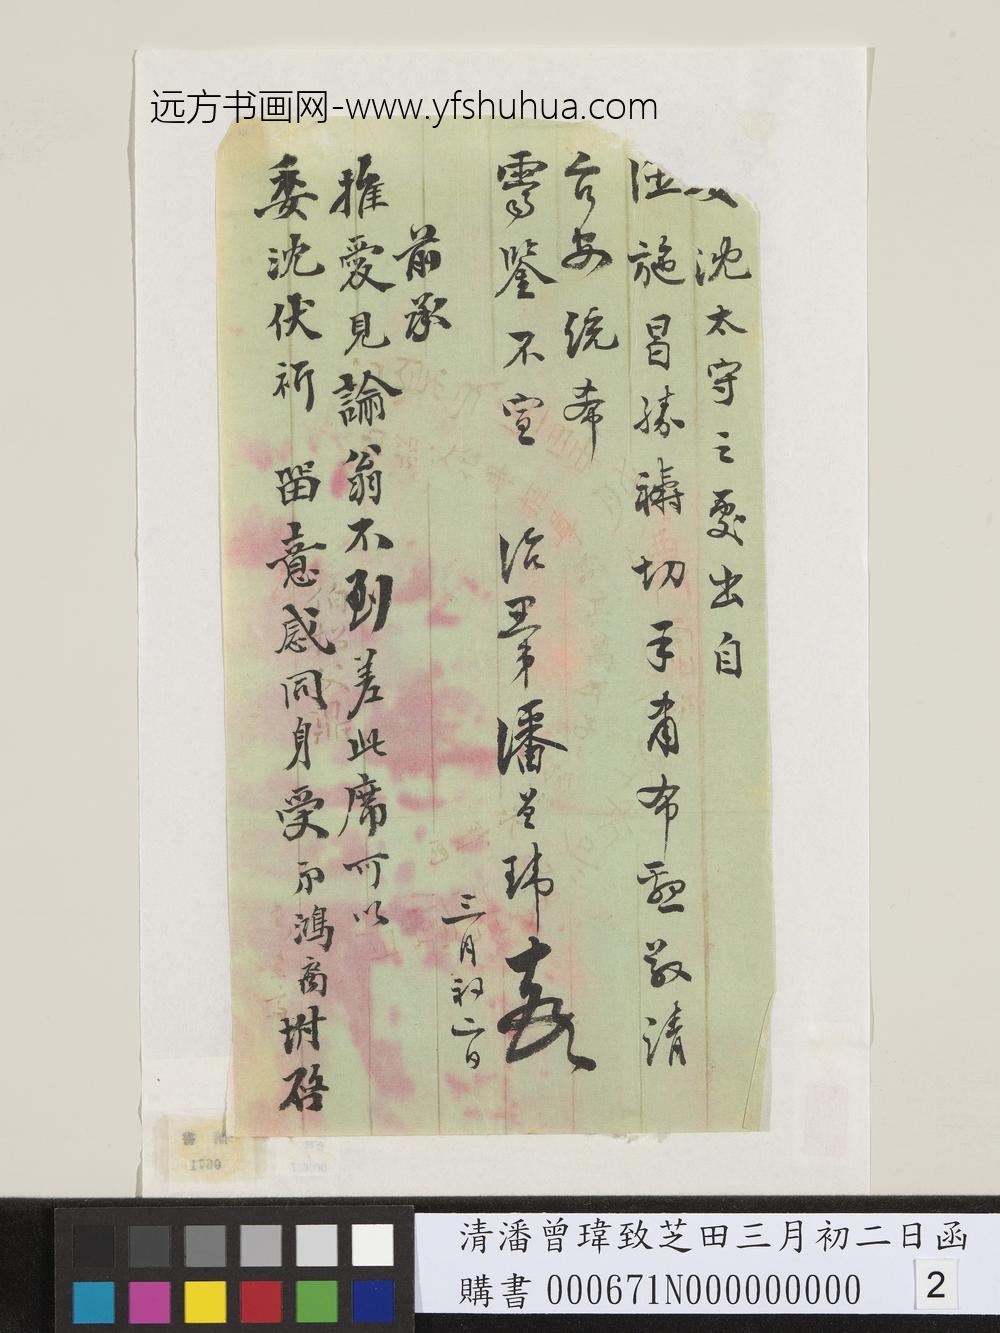 远方书画网-www.yfshuhua.com
沈太守之處出自
施昌勝禱切手肅布懇敬請
台安統希
霽鑒不宣 治單弟潘曾瑋
三月初二日
前承
推愛見諭翁不到差此席可以
委沈伏祈 留意感同身受 鴻商坿啓
清潘曾瑋致芝田三月初二日函
購書000671N000000000
2